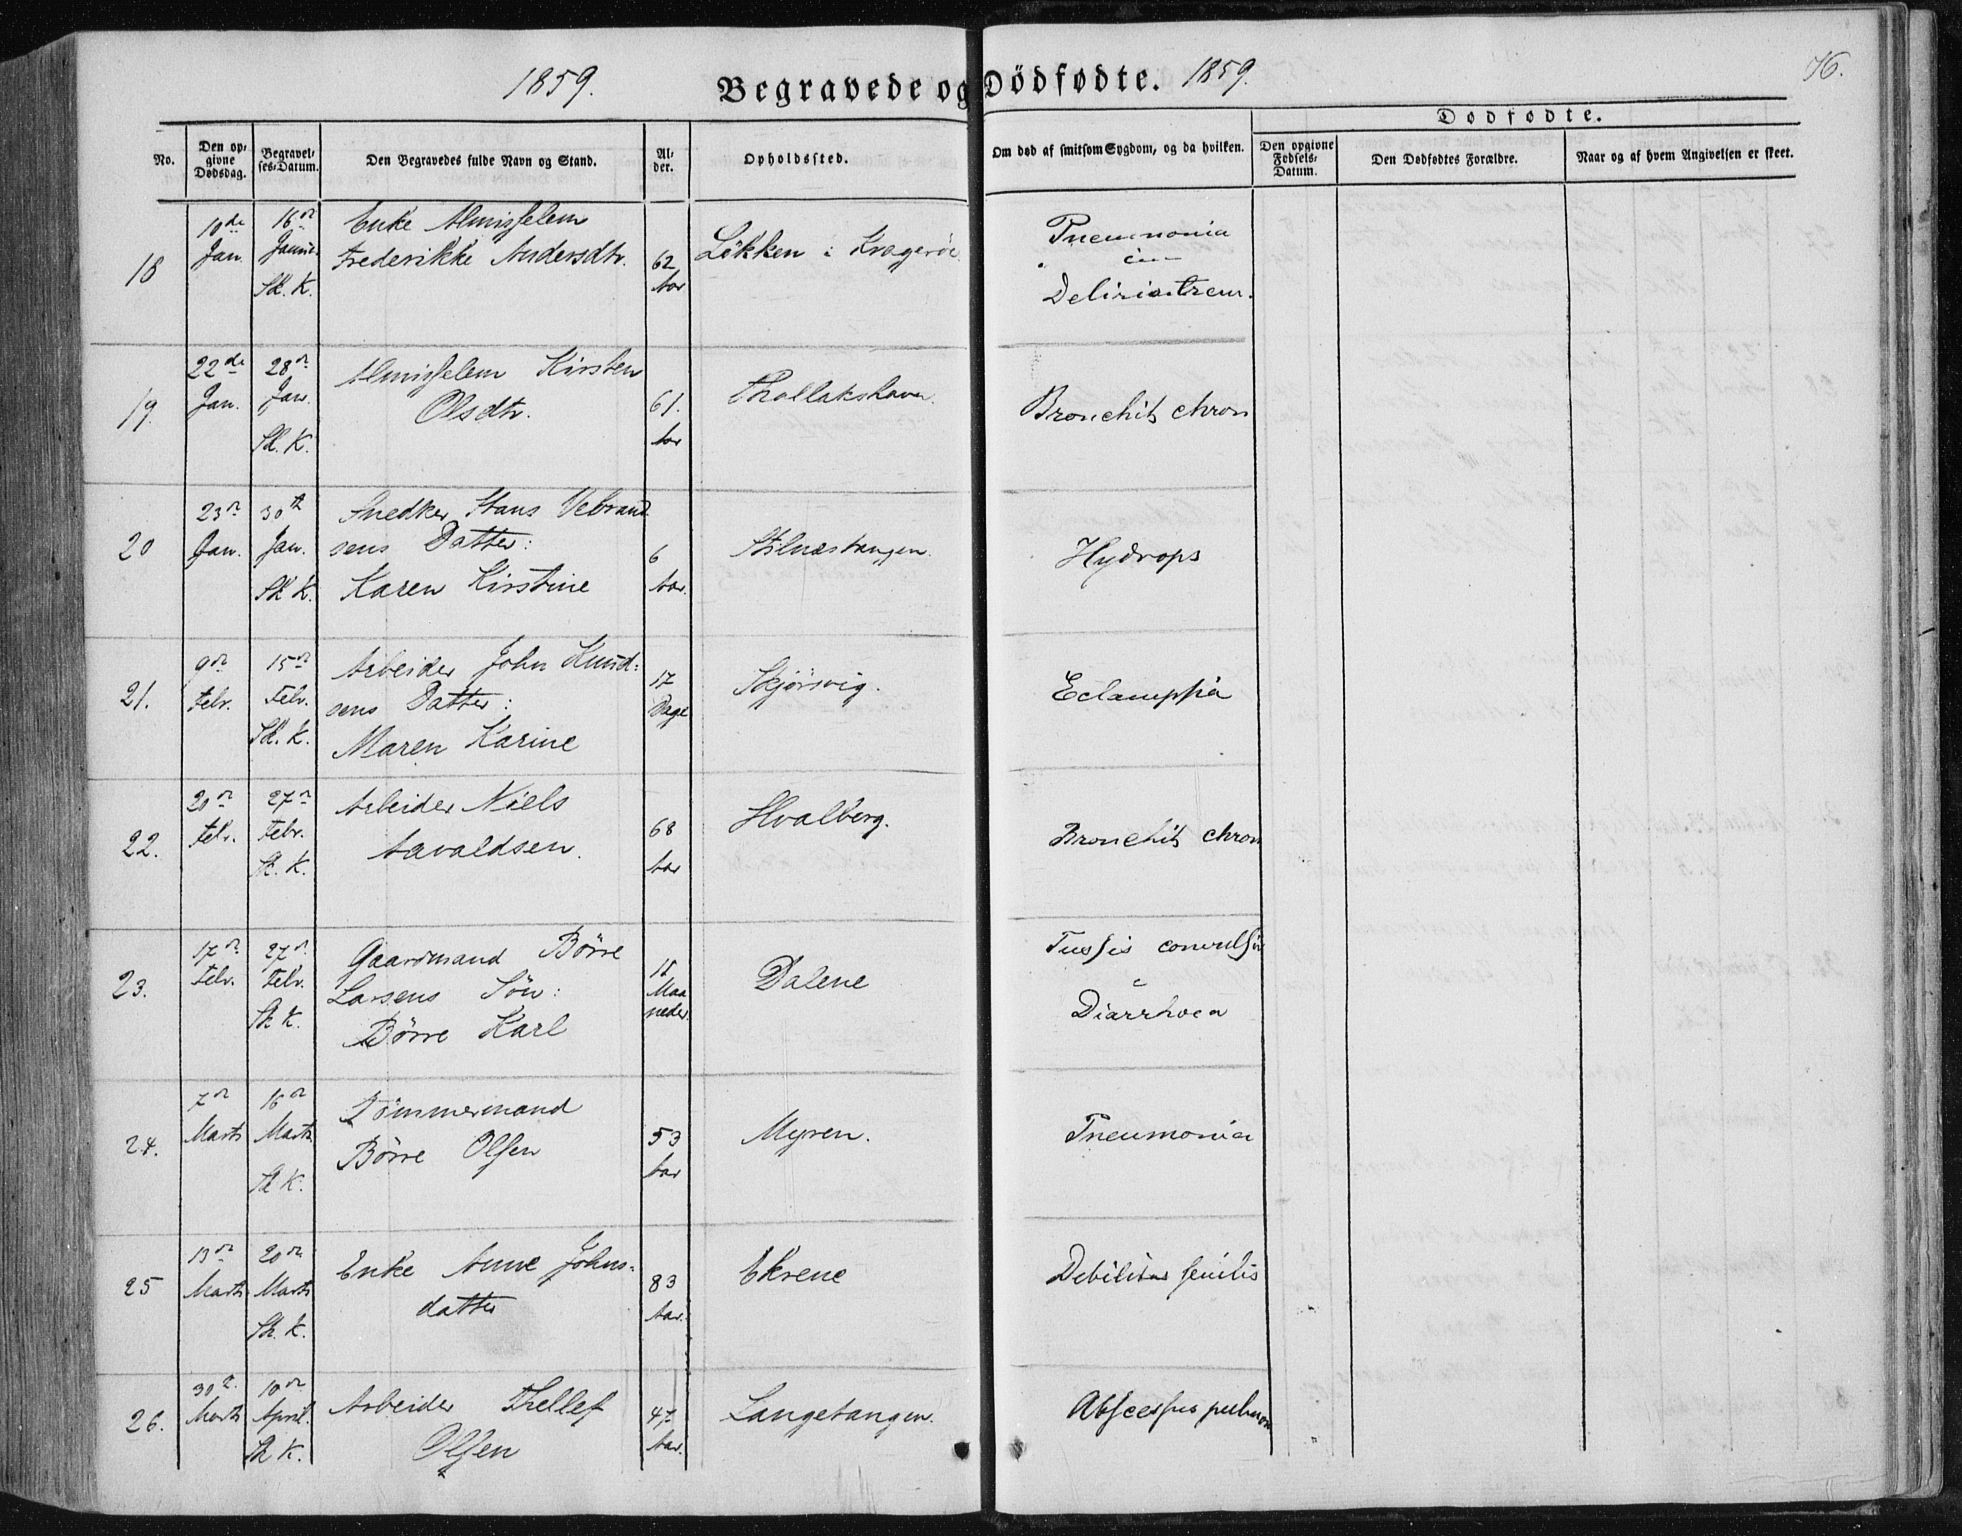 1859.
Begravede og Dödfødte. 1859.
76.
No.
Den opgivne Dødsdag.
Begravelses-Datum.
Den Begravedes fulde Navn og Stand.
Alder.
Opholdssted.
Om død af smitsom Sygdom, og da hvilken.
Dødfødte.
Den opgivne Fødsels-Datum.
Den Dødfødtes Forældre.
Naar og af hvem Angivelsen er skeet.
18
10de Jan.
16de Januar Sk. K.
Enke Almisselem
Frederikke Andersdtr.
62 Aar
Lökken i Kragerøe
Pneumonia
Deliriu trem.
19.
22de Jan.
28de Jan. Sk. K.
Almisselem Kirsten
Olsdtr.
61. Aar
Thollakshavn.
Bronchit chron
20
23de Jan.
30te Jan. Sk K.
Snedker Hans Vebrand
sens Datter:
Karen Kirstine
6 Aar.
Stilnestangen.
Hydrops
21.
9de Febr.
15de Febr. Sk. K.
Arbeider John Knud:
sens Datter:
Maren Karine
17 Dage
Skjörsvig.
Eclampsia
22.
20de Febr.
27de Febr. Sk. K.
Arbeider Niels
Aavaldsen.
68 Aar
Hvalberg.
Bronchit chron
23.
17de Febr.
27de Febr. Sk K.
Gaardmand Börre
Larsens Sön:
Börre Karl
Maaneder.
Dalene
Tussis convulsiv
c
Diarrhoea
24.
7de Marts
16de Marts Sk K.
Tömmermand
Börre Olsen
53 Aar
Myren.
Pneumonia
25
13de Marts
20de Marts Sk. K.
Enke Anne Johns-
datter
83 Aar.
Ekrene
Debilitas senilis
26.
30te Marts
10de April. Sk K.
Arbeider Thellef
Olsen
47 Aar.
Langetangen.
Abscessus pulmon